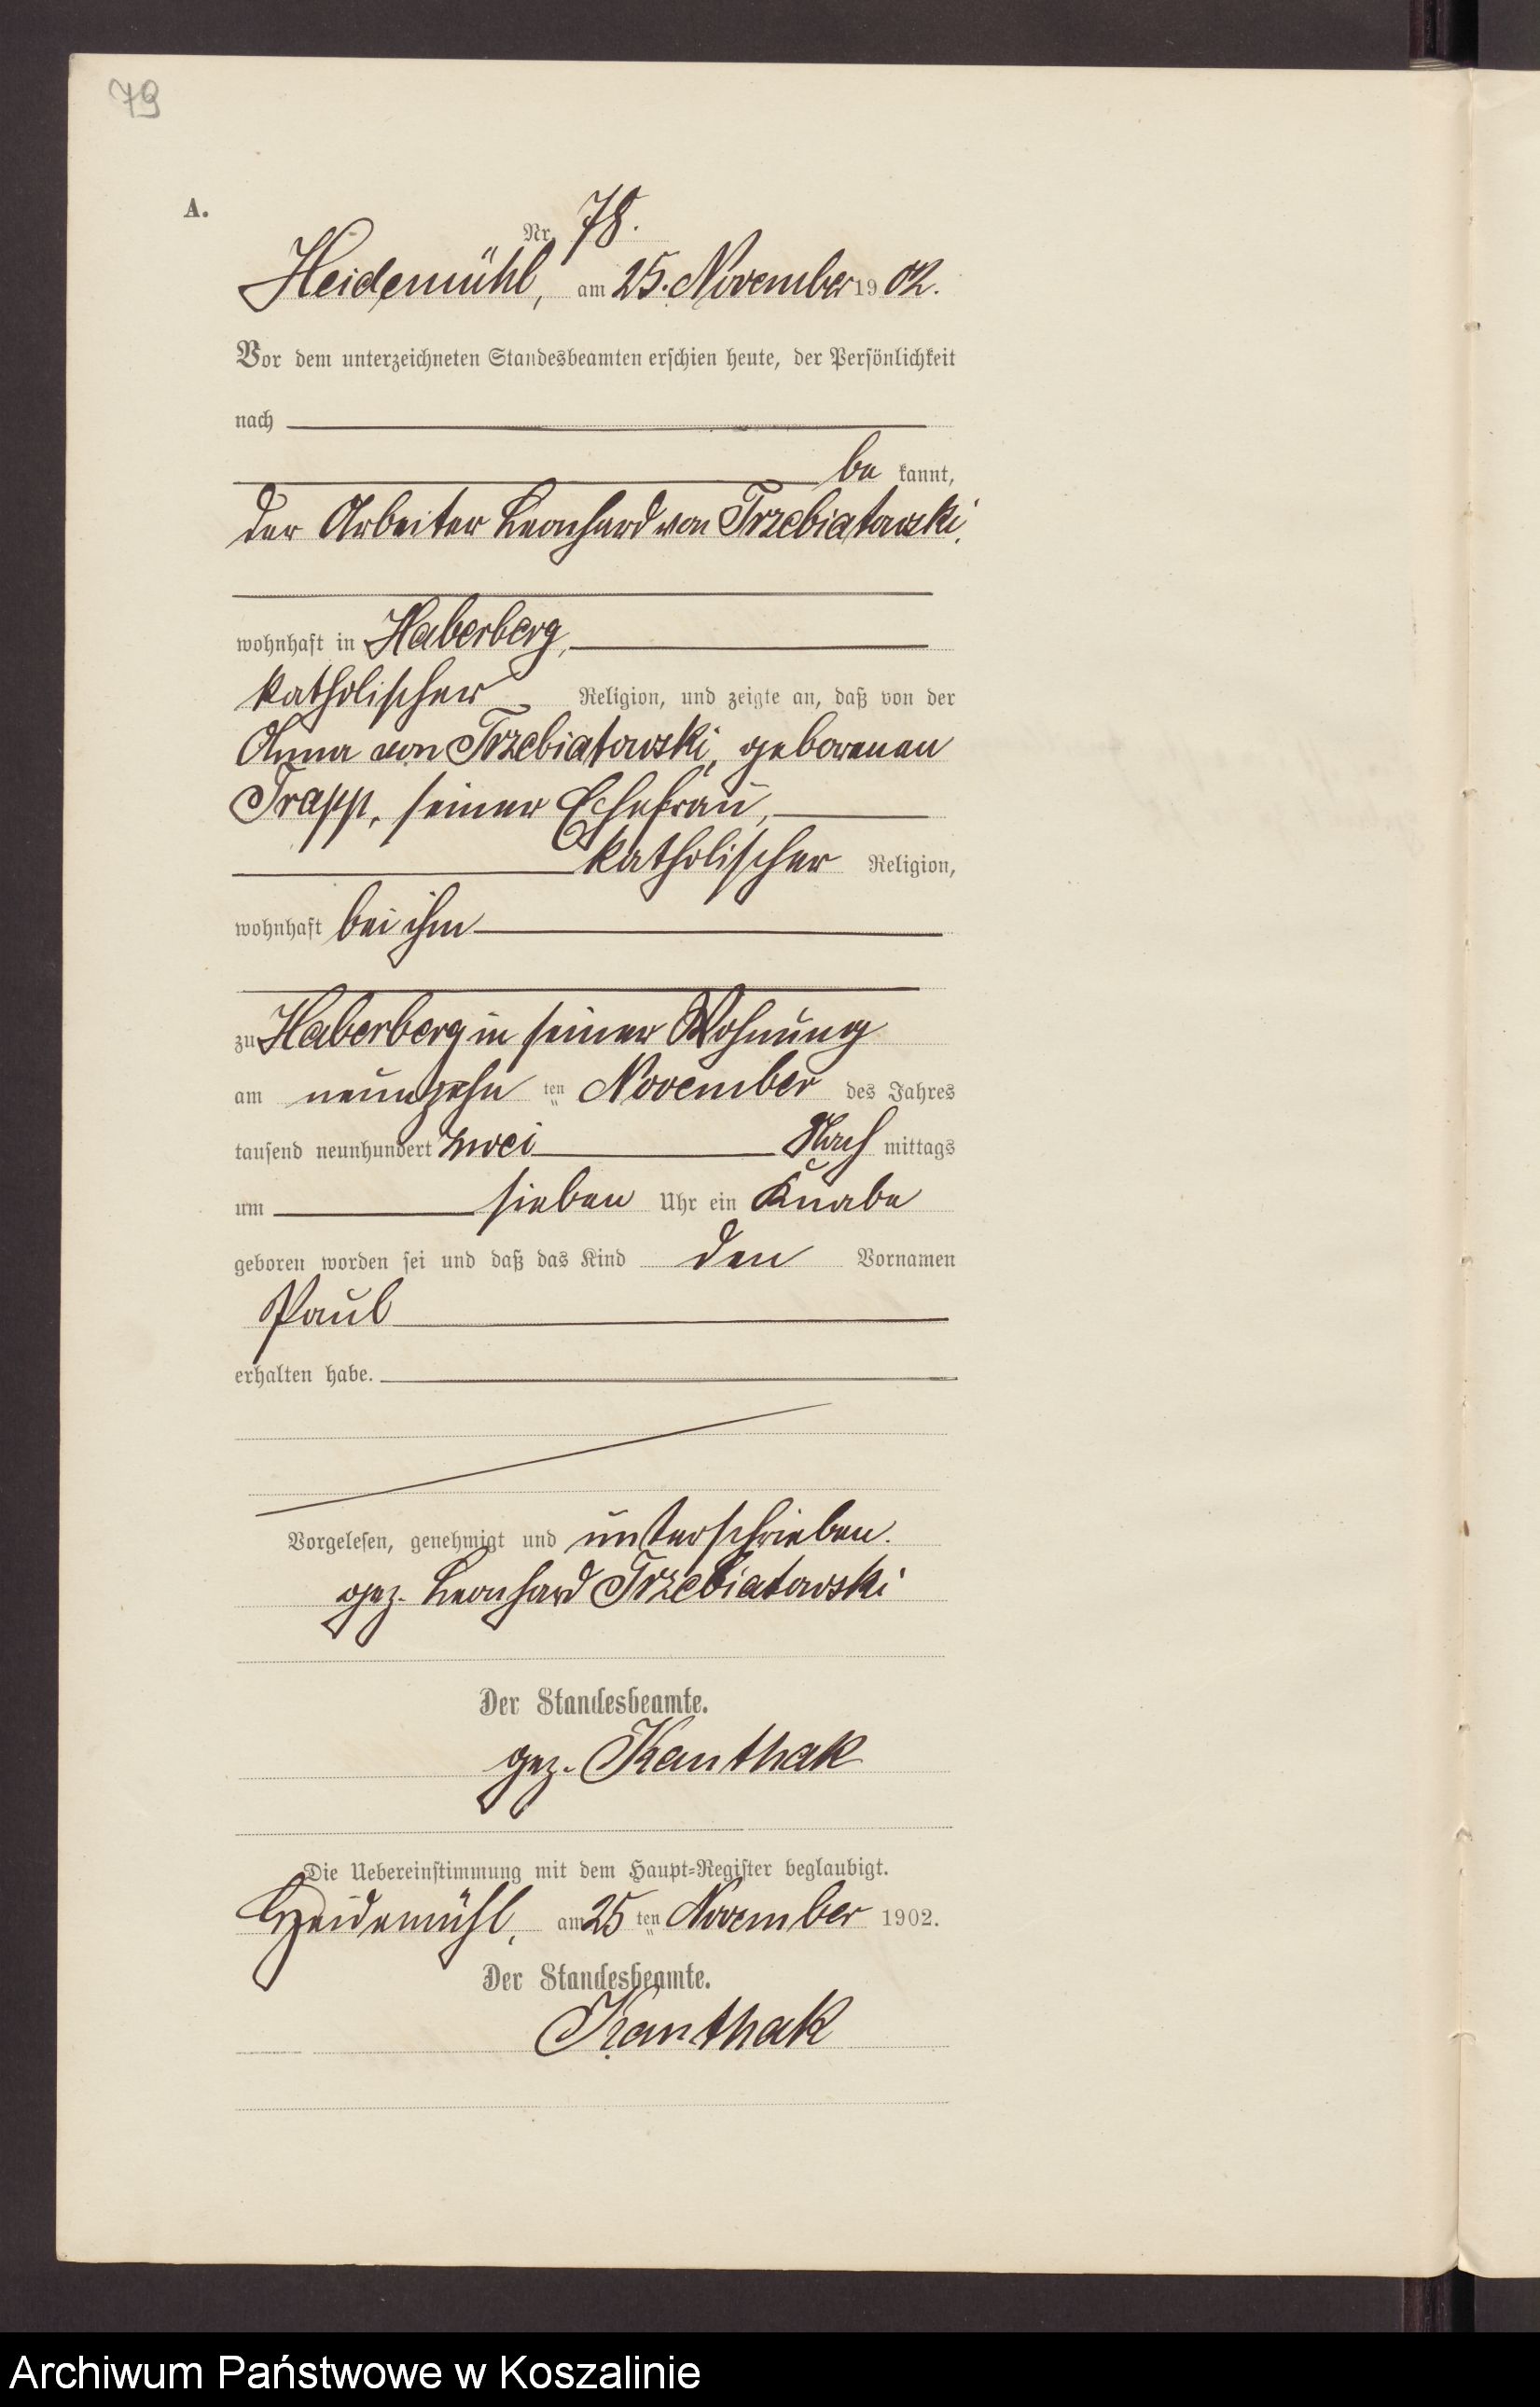 79
A.
Nr. 78.
Heidemühl, am 25. November 1902.
Vor dem unterzeichneten Standesbeamten erschien heute, der Persönlichkeit
nach
be kannt,
der Arbeiter Leonhard von Trzebiatowski,
wohnhaft in Haberberg,
katholischer Religion, und zeigte an, daß von der
Anna von Trzebiatowski, geborenen
Trapp, seiner Ehefrau,
katholischer Religion,
wohnhaft bei ihm
zu Haberberg in seiner Wohnung
am neunzehn ten November des Jahres
tausend neunhundert zwei Nach mittags
um sieben Uhr ein Knabe
geboren worden sei und daß das Kind den Vornamen
Paul
erhalten habe.
Vorgelesen, genehmigt und unterschrieben.
gez. Leonhard Trzebiatowski
Der Standesbeamte.
gez. Kanthak
Die Uebereinstimmung mit dem Haupt=Register beglaubigt.
Heidemühl, am 25 ten November 1902.
Der Standesbeamte.
Kanthak
Archiwum Państwowe w Koszalinie